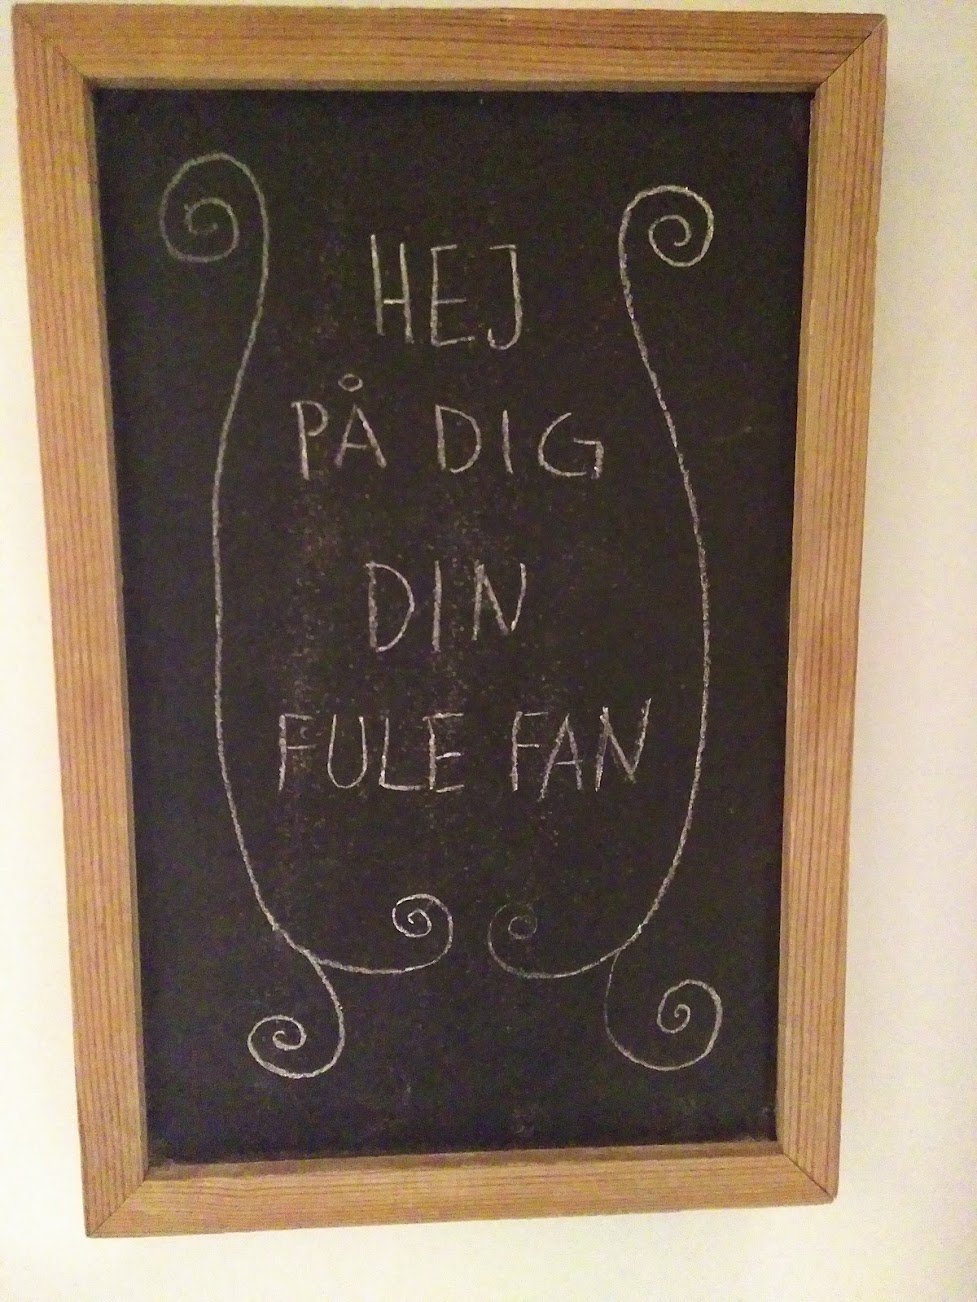 HEJ
PÅ DIG
DIN
FULE FAN